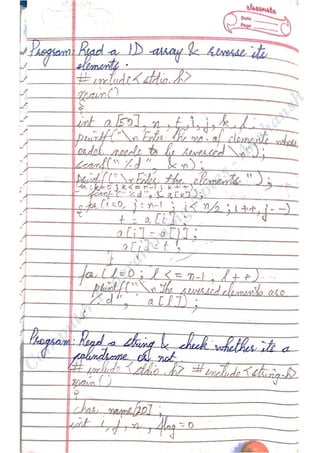 classmate
Date
Page
Program: Read a 1D array & reverse its
elements.
# include <stdio.h>
main()
{
int a[50], n, t, i, j, k, l;
printf("\n Enter the no. of elements whose
order needs to be reversed \n");
scanf("%d", &n);
printf("\n Enter the elements");
for (k=0; k<=n-1; k++)
scanf("%d", &a[k]);
for (i=0, j=n-1; i<n/2; i++, j--)
{
t = a[i];
a[i] = a[j];
a[j] = t;
}
for (l=0; l<=n-1; l++)
printf("\n the reversed elements are
%d", a[l]);
}
Program: Read a string & check whether its a
palindrome or not
# include <stdio.h> # include <string.h>
main()
{
char name[20];
int i, j, n, flag=0